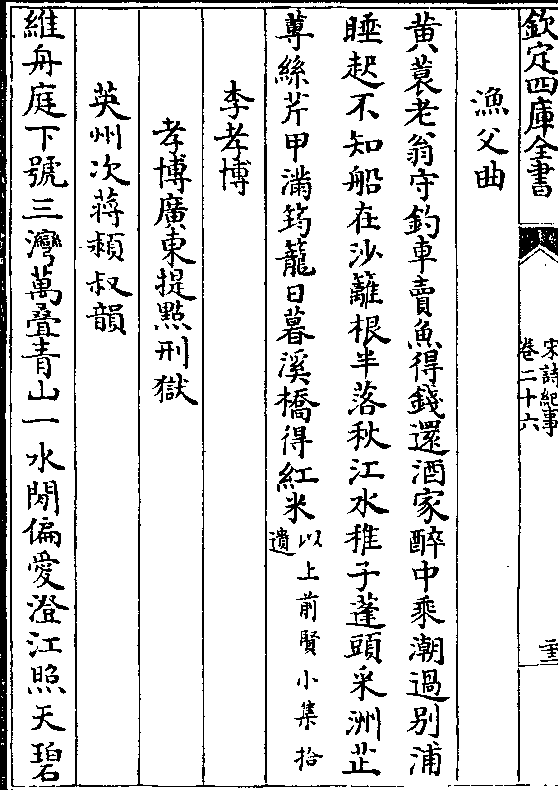 欽定四庫全書
宋詩紀事
卷二十六
漁父曲
黄蓑老翁守釣車賣魚得錢還酒家醉中乘潮過別浦
睡起不知船在沙籬根半落秋江水稚子蓬頭采洲芷
蓴絲芹甲滿筠籠日暮溪橋得紅米以上前賢小集拾
遺
李孝博
孝博廣東提點刑獄
英州次蔣穎叔韻
維舟庭下號三灣萬疊青山一水閒偏愛澄江照天碧